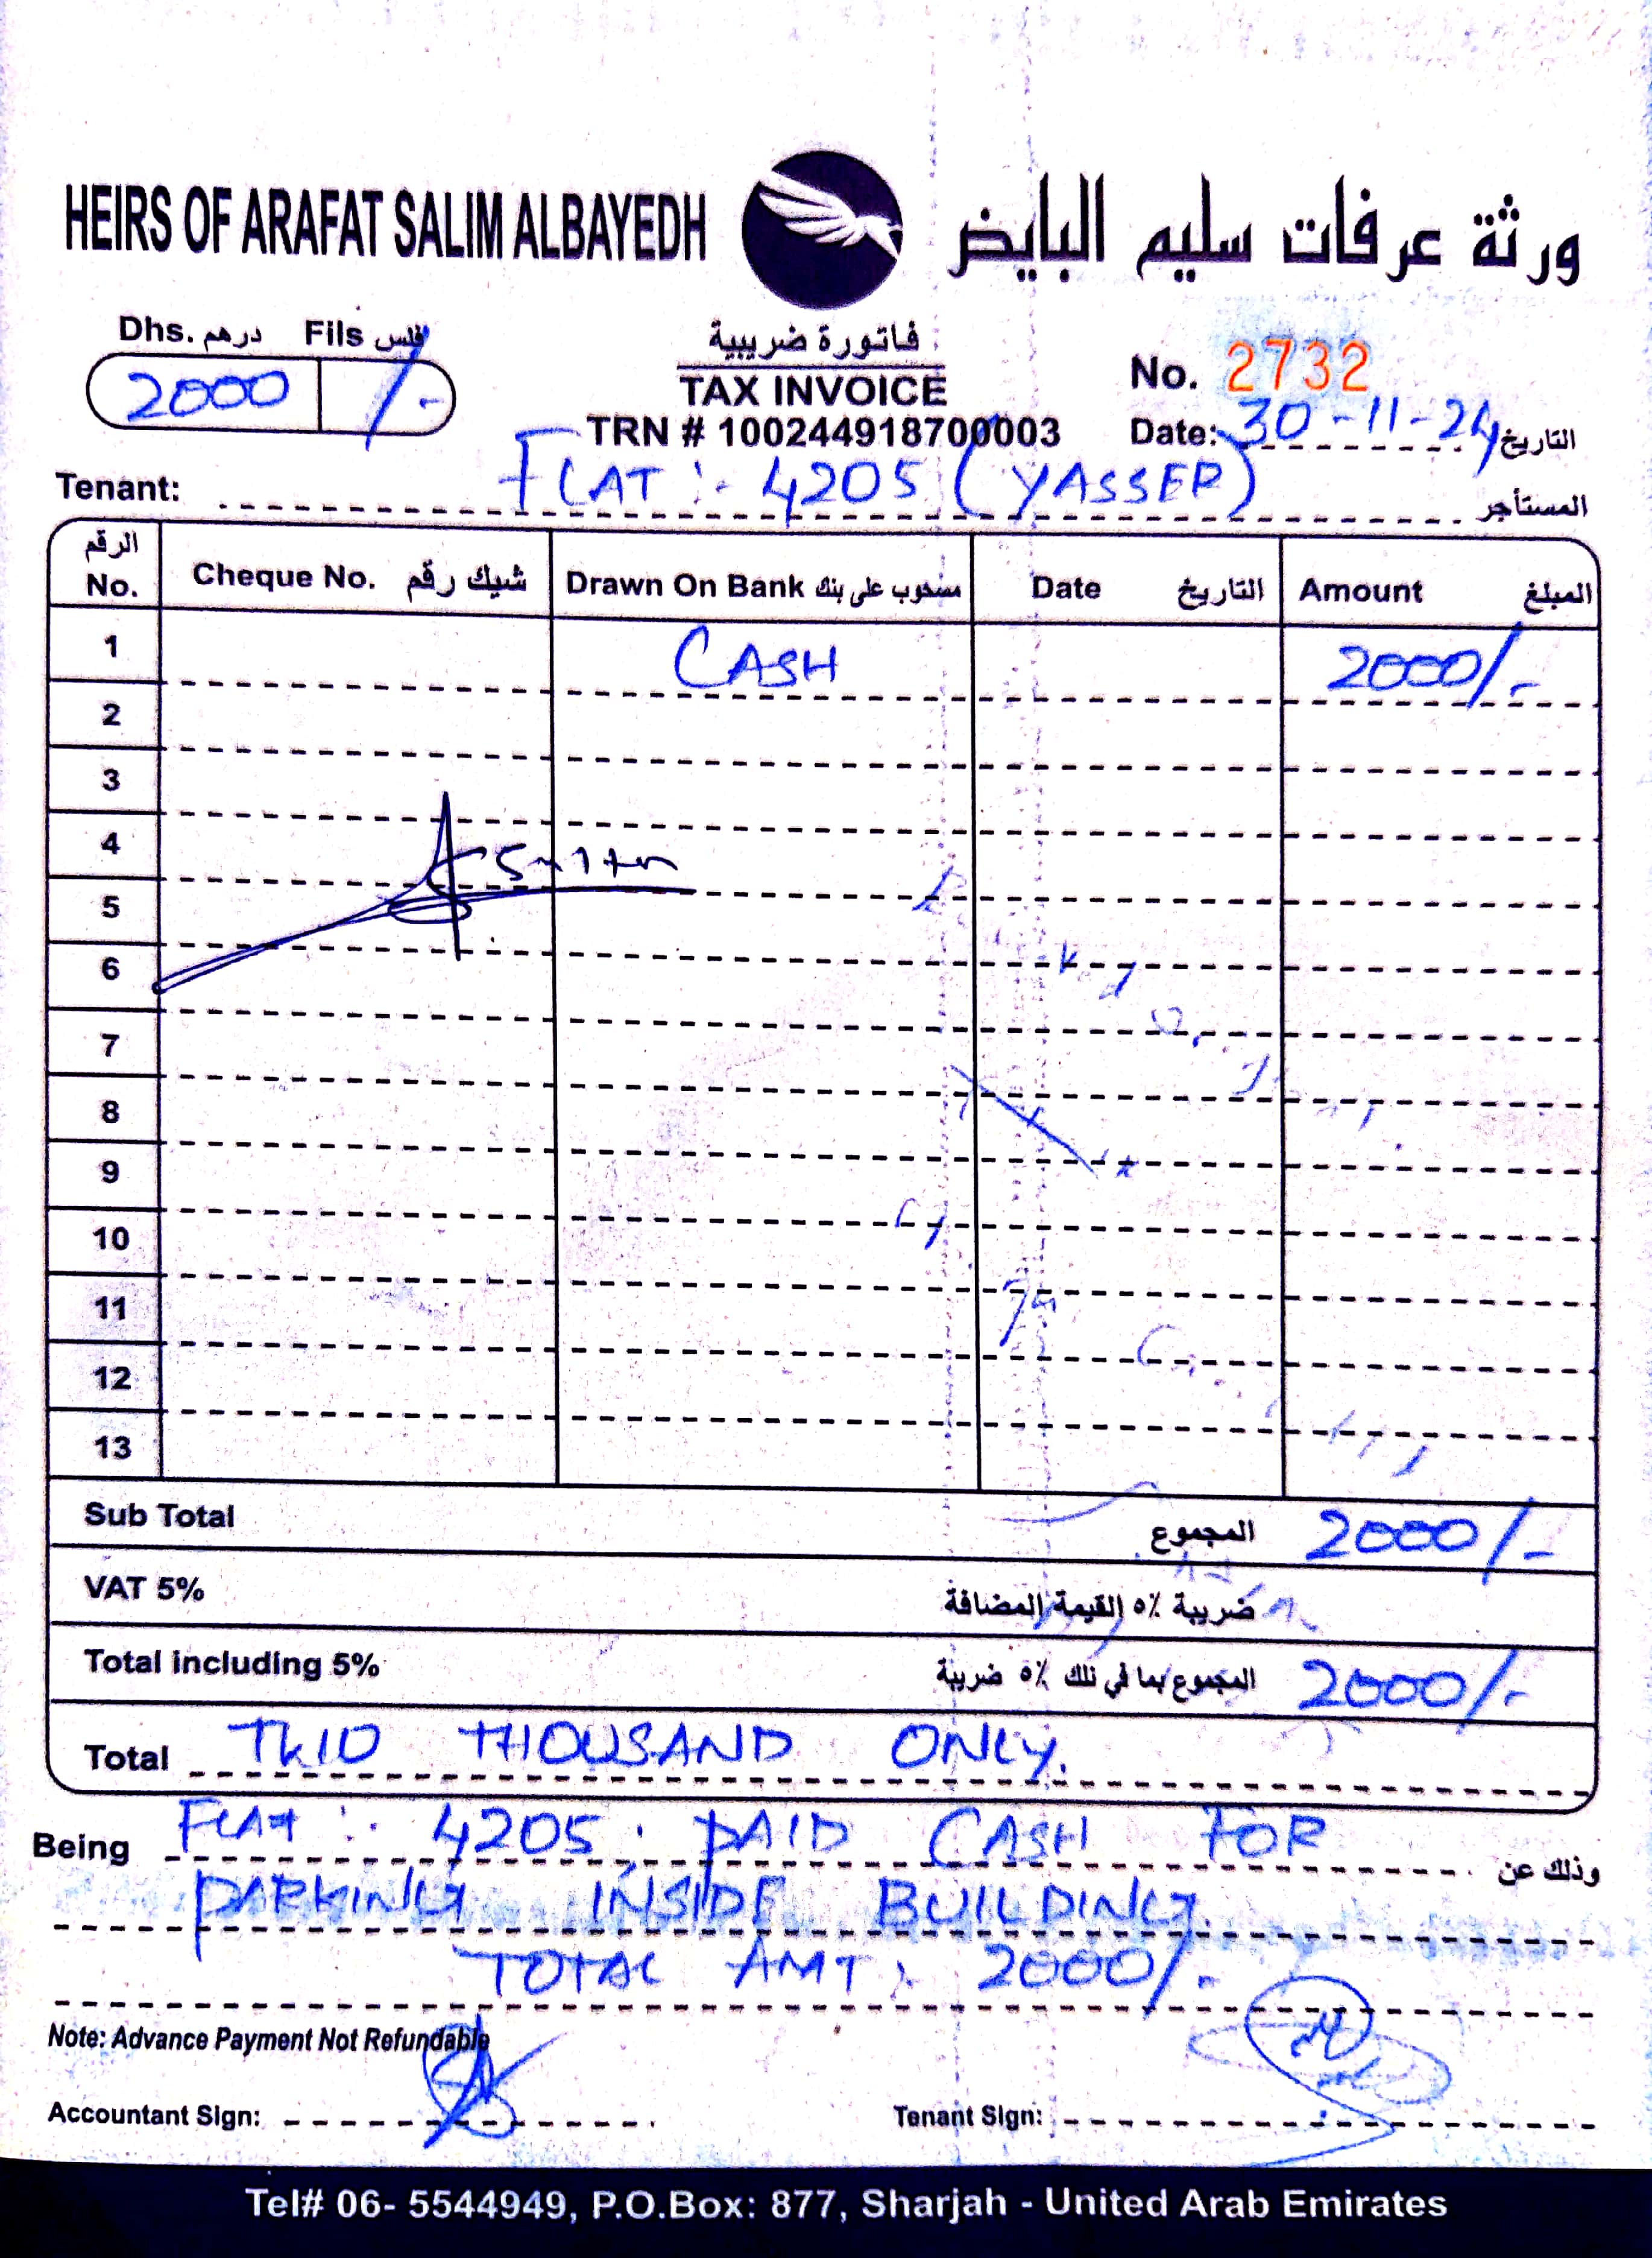 HEIRS OF ARAFAT SALIM ALBAYEDH ورثة عرفات سليم البايض
Dhs. درهم Fils فلس
2000 /-
فاتورة ضريبية
TAX INVOICE
TRN # 100244918700003
No. 2732
Date: 30-11-24 التاريخ
Tenant: FLAT :- 4205 (YASSER) المستأجر
الرقم No. Cheque No. شيك رقم Drawn On Bank مسحوب على بنك Date التاريخ Amount المبلغ
1 CASH 2000/-
2
3
4
5
6
7
8
9
10
11
12
13
Sub Total المجموع 2000/-
VAT 5% ضريبة ٥٪ القيمة المضافة
Total including 5% المجموع بما في ذلك ٥٪ ضريبة 2000/-
Total TWO THOUSAND ONLY.
Being FLAT :- 4205, PAID CASH FOR وذلك عن
PARKING INSIDE BUILDING.
TOTAL AMT: 2000/-
Note: Advance Payment Not Refundable
Accountant Sign: Tenant Sign:
Tel# 06- 5544949, P.O.Box: 877, Sharjah - United Arab Emirates